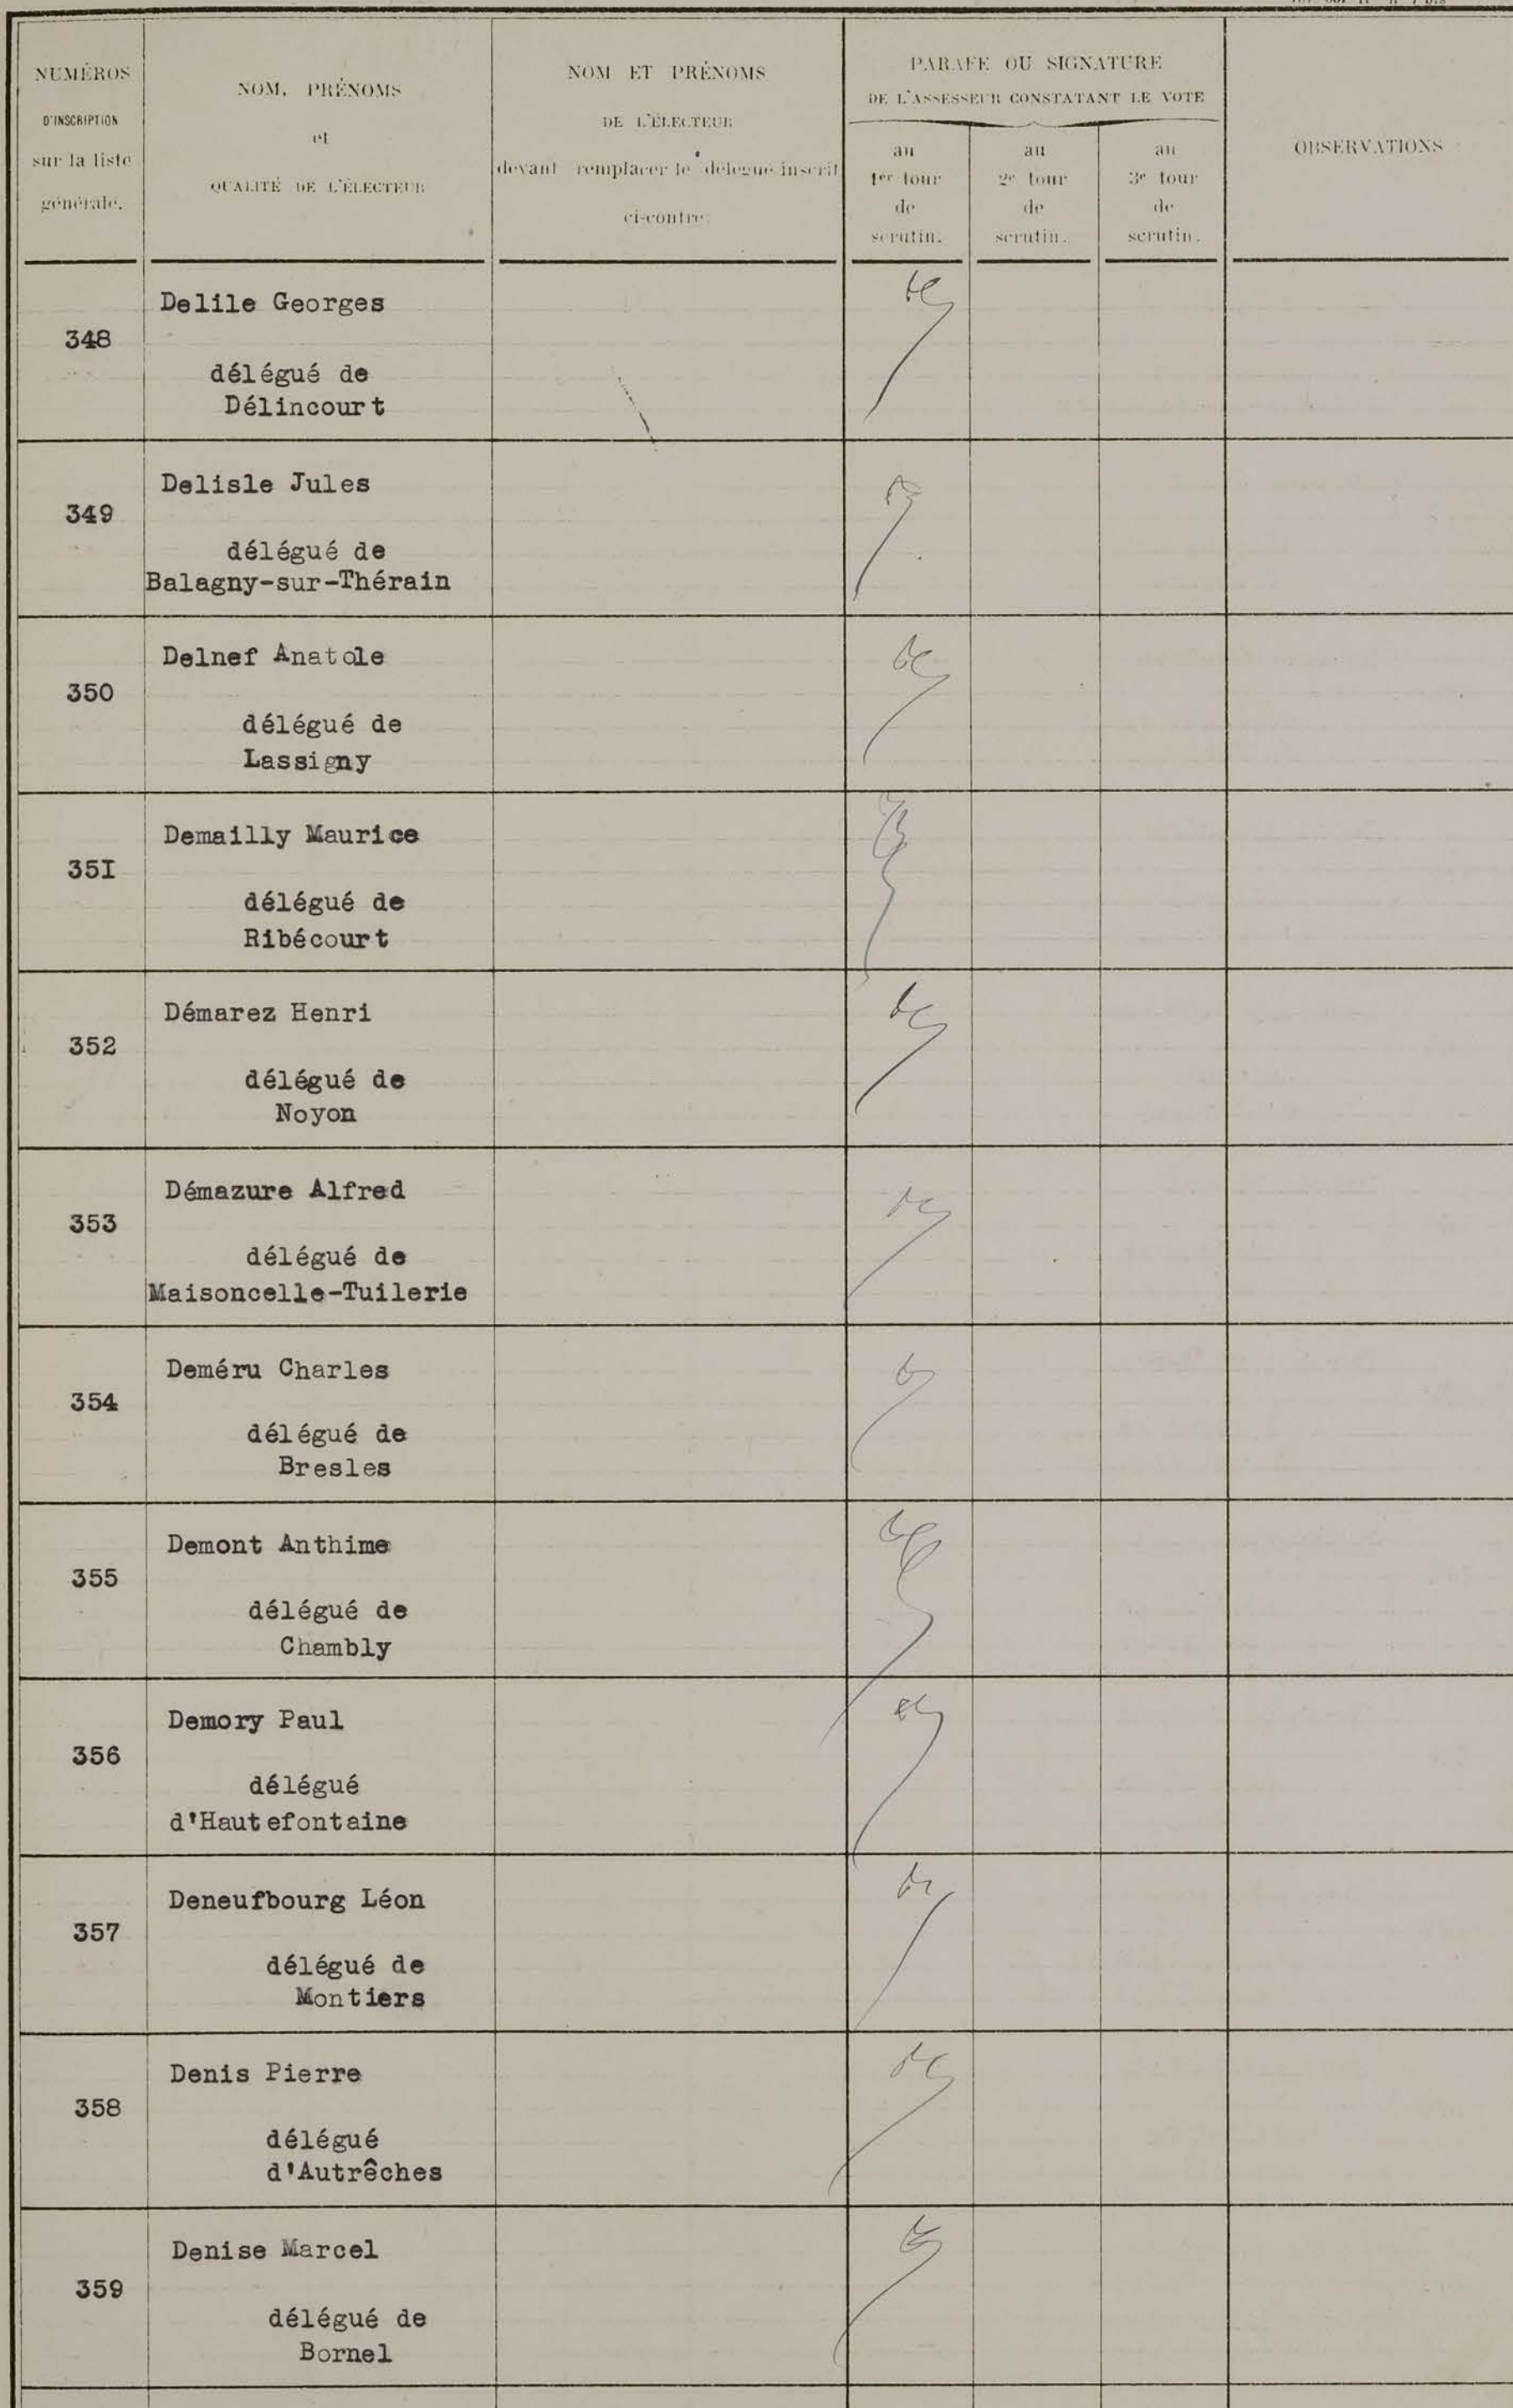 NUMÉROS
D'INSCRIPTION
sur la liste
générale.
NOM, PRÉNOMS
et
QUALITÉ DE L'ÉLECTEUR
NOM ET PRÉNOMS
DE L'ÉLECTEUR
devant remplacer le délégué inscrit
ci-contre.
PARAFE OU SIGNATURE
DE L'ASSESSEUR CONSTATANT LE VOTE
au
1er tour
de
scrutin.
au
2e tour
de
scrutin.
au
3e tour
de
scrutin.
OBSERVATIONS
348
Delile Georges
délégué de
Délincourt
349
Delisle Jules
délégué de
Balagny-sur-Thérain
350
Delnef Anatole
délégué de
Lassigny
35I
Demailly Maurice
délégué de
Ribécourt
352
Démarez Henri
délégué de
Noyon
353
Démazure Alfred
délégué de
Maisoncelle-Tuilerie
354
Deméru Charles
délégué de
Bresles
355
Demont Anthime
délégué de
Chambly
356
Demory Paul
délégué
d'Hautefontaine
357
Deneufbourg Léon
délégué de
Montiers
358
Denis Pierre
délégué
d'Autrêches
359
Denise Marcel
délégué de
Bornel